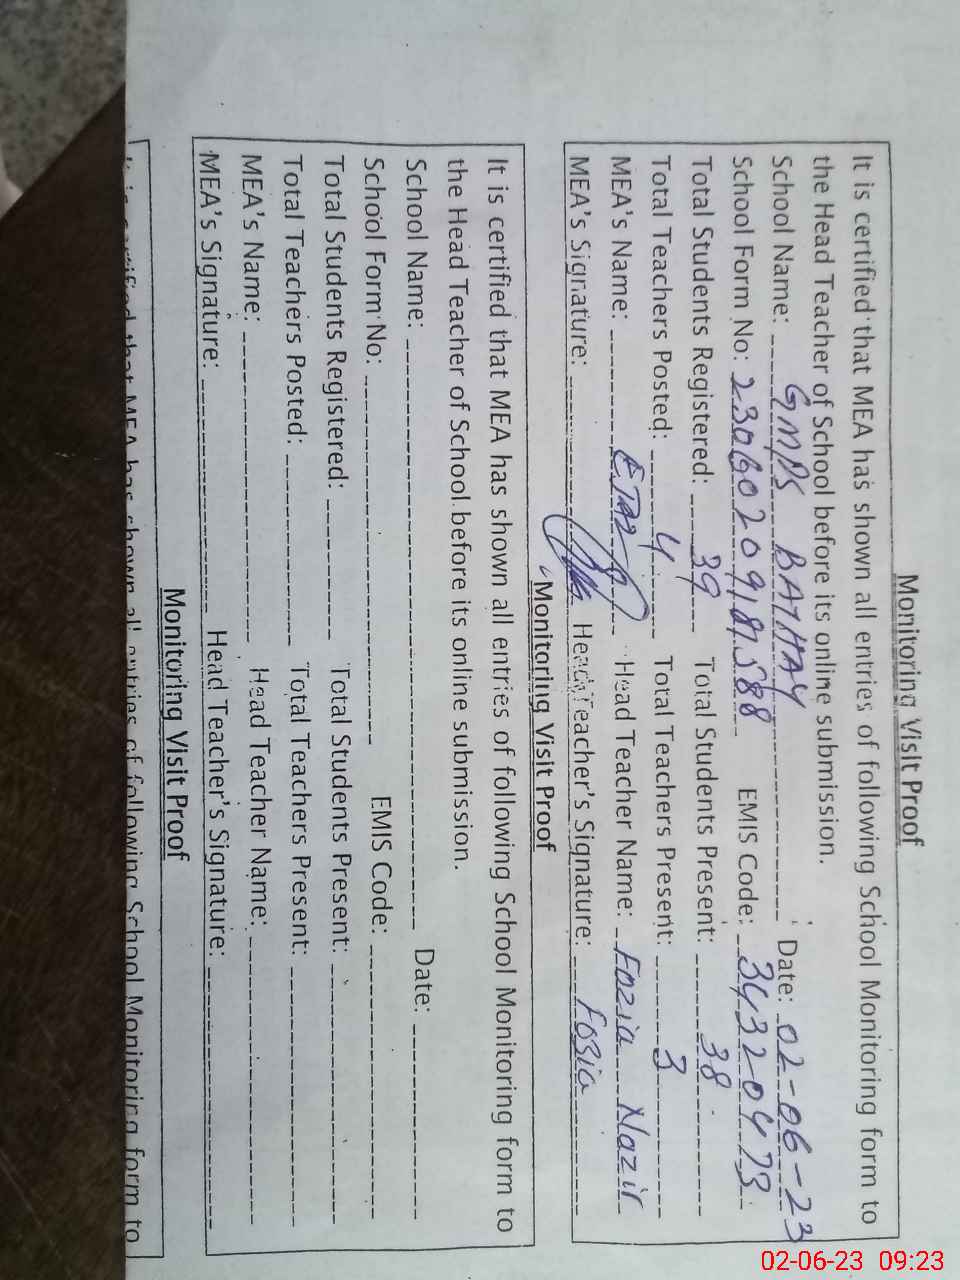 Monitoring Visit Proof
It is certified that MEA has shown all entries of following School Monitoring form to
the Head Teacher of School before its online submission.
School Name: GMPS BATHAY Date: 02-06-23
School Form No: EMIS Code: 34320473
Total Students Registered: 39 Total Students Present: 38
Total Teachers Posted: 4 Total Teachers Present: 3
MEA's Name: Head Teacher Name: Fozia Nazir
MEA's Signature: Head Teacher's Signature: Fozia
Monitoring Visit Proof
It is certified that MEA has shown all entries of following School Monitoring form to
the Head Teacher of School before its online submission.
School Name: Date:
School Form No: EMIS Code:
Total Students Registered: Total Students Present:
Total Teachers Posted: Total Teachers Present:
MEA's Name: Head Teacher Name:
MEA's Signature: Head Teacher's Signature:
Monitoring Visit Proof
It is certified that MEA has shown all entries of following School Monitoring form to
02-06-23 09:23